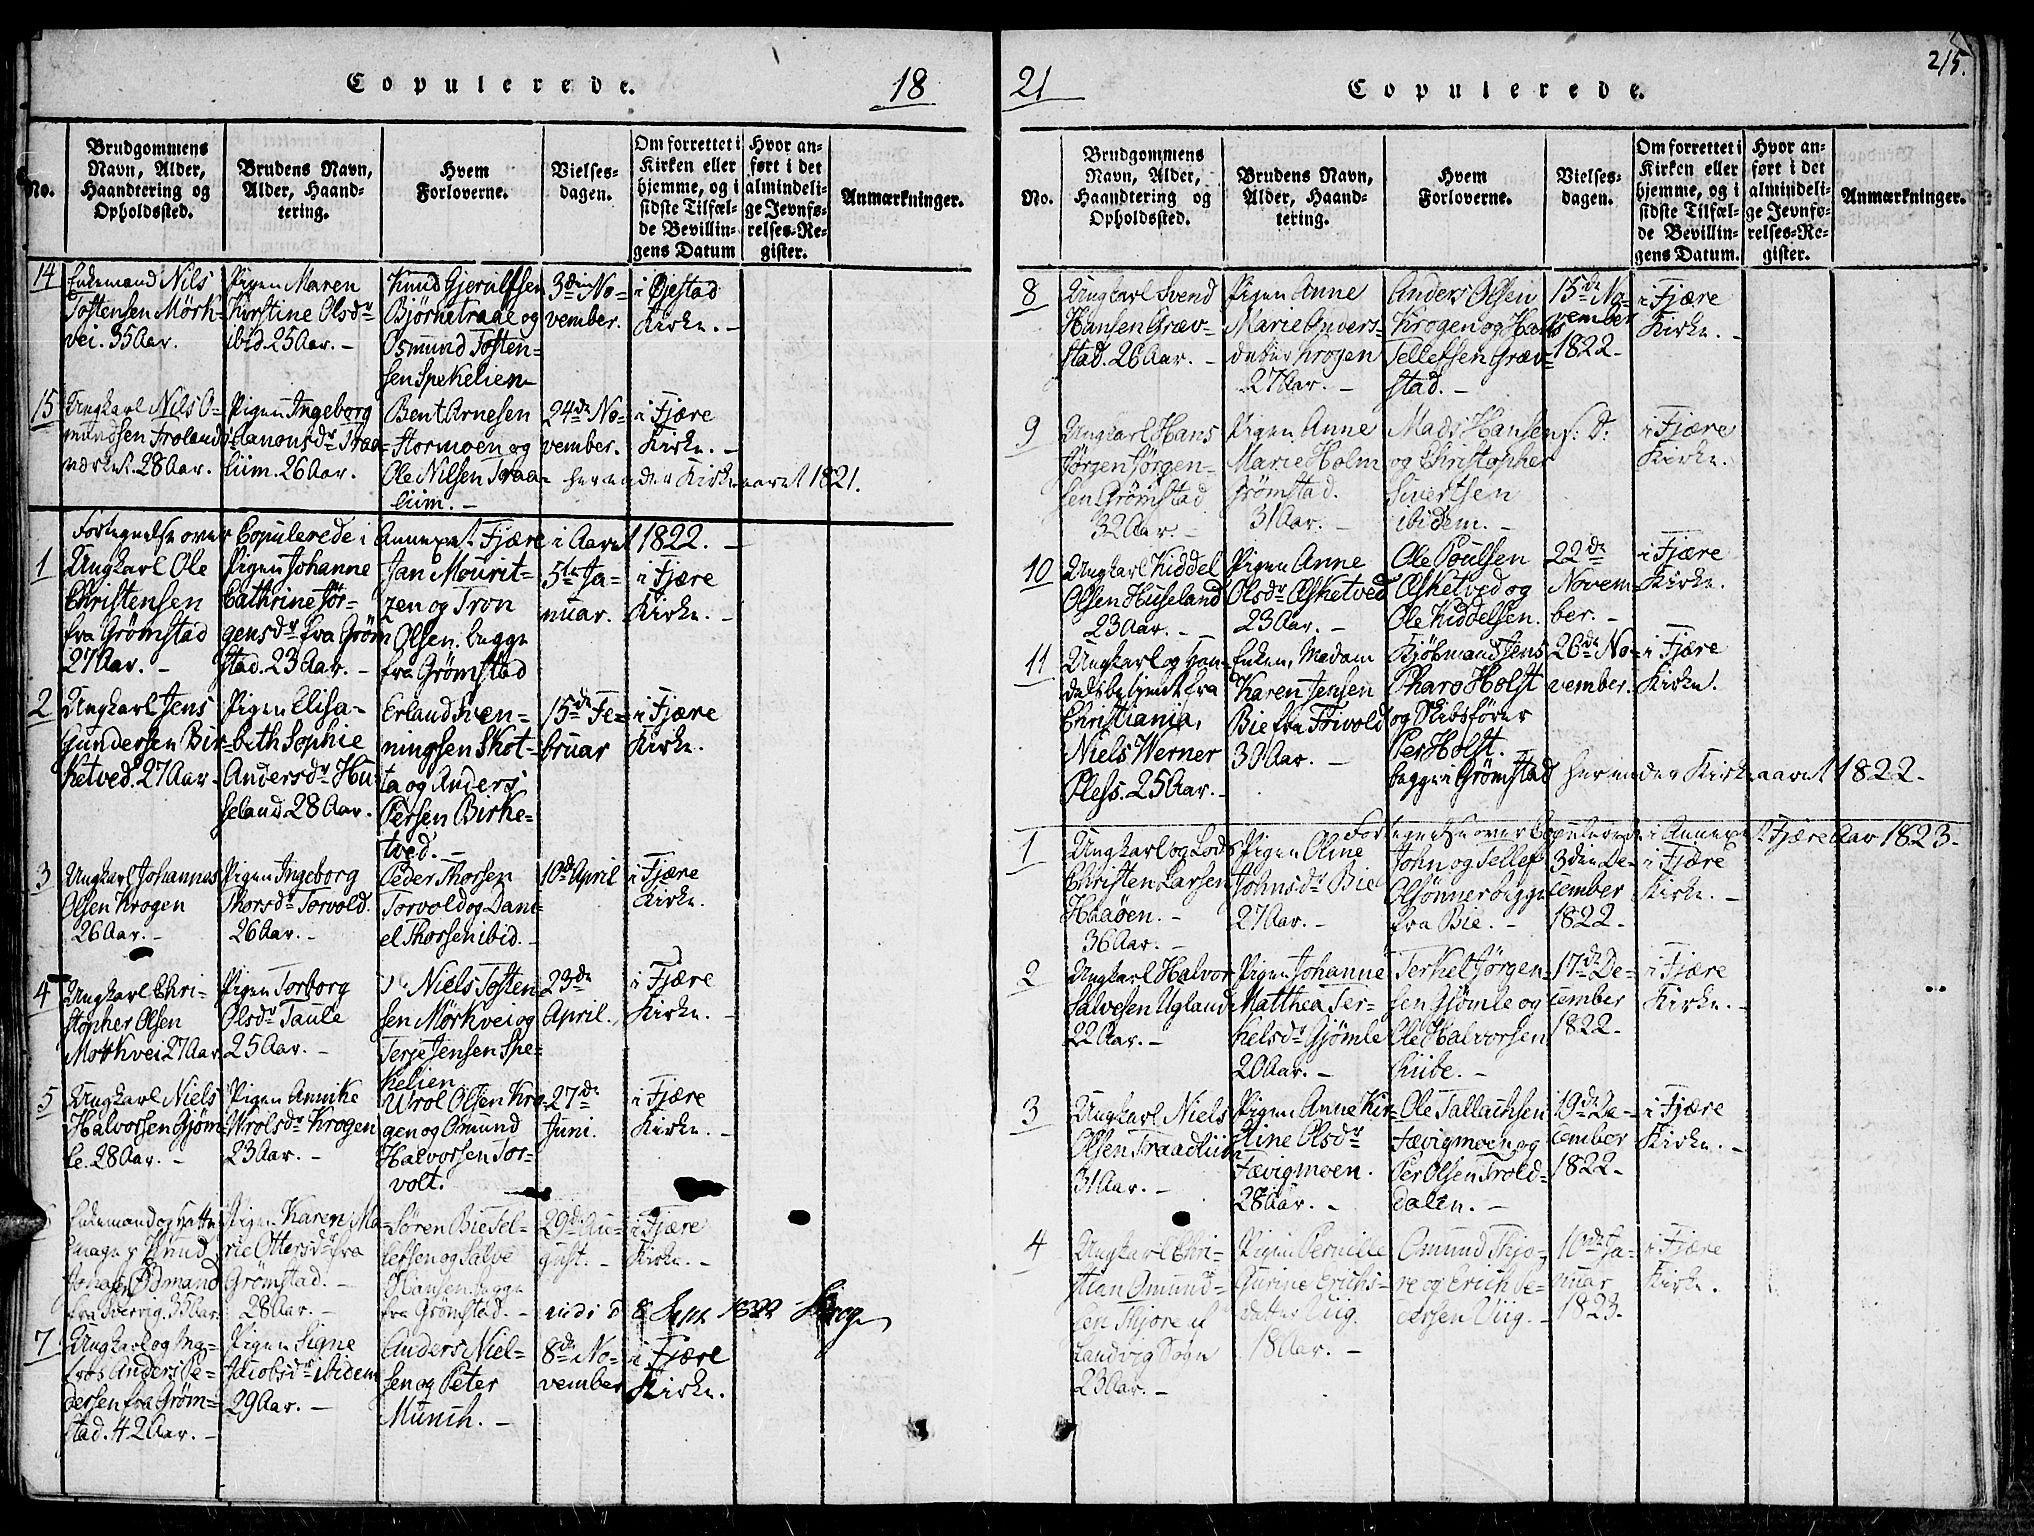 Copulerede. 18
No.
Brudgommens Navn, Alder, Haandtering og Opholdssted.
Brudens Navn, Alder, Haandtering.
Hvem Forloverne.
Vielsesdagen.
Om forrettet i Kirken eller hjemme, og i sidste Tilfælde Bevillingens Datum
Hvor anført i det almindelige Jevnførelses-Register.
Anmærkninger.
14
Enkemand Nils
Tostensen Mörkvei. 35 Aar.
Pigen Maren
Kirstine Olsdr
ibid. 25 Aar. –
Knud Gjerulfsen
Björnetraae og
Osmund Tostensen Spekelien
3die November.
i Öiestad
Kirke. –
15
Ungkarl Nils Omundsen Frolands
værket. 28 Aar.
Pigen Ingeborg
Aanonsdr Traaliim. 26 Aar.
Bent Arnesen
Stormoen og
Ole Nilsen Traaliim. –
24de November.
i Fjære
Kirke. –
her ender Kirkeaaret 1821.
Fortegnelse over Copulerede i Annexet Fjære i Aaret 1822. –
1
Ungkarl Ole
Christensen
fra Grömstad
27 Aar. –
Pigen Johanne
Cathrine Jörgensdr fra Grömstad. 23 Aar. –
Jan Mouritzen og Tron
Olsen. begge
fra Grömstad
5te Januar.
i Fjære
Kirke. –
2
Ungkarl Jens
Gundersen Birketved. 27 Aar.
Pigen Elisabeth Sophie
Andersdr Huseland. 28 Aar.
Erland Svenningsen Skotta og Anders
Persen Birketved. –
15de Februar
i Fjære
Kirke.
3
Ungkarl Johannes
Olsen Krogen
26 Aar. –
Pigen Ingeborg
Thorsdr Torvold.
26 Aar. –
Peder Thorsen
Torvold og Daniel Thorsen ibid. –
10de April
i Fjære
Kirke.
4
Ungkarl Christopher Olsen
Mörkvei 27 Aar
Pigen Torborg
Olsdr Taule
25 Aar. –
Niels Tostensen Mörkvei og
Terje Jensen Spekelien
23de
April.
i Fjære
Kirke. –
5
Ungkarl Niels
Halvorsen Gjömle. 28 Aar. –
Pigen Annike
Wrolsdr Krogen
23 Aar. –
Wrol Olsen Krogen og Omund
Halvorsen Torvolt.
27de
Juni.
i Fjære
Kirke. –
6
Enkemand og Hattemager Knud
Johansen
fra 35 Aar
Pigen Karen Marie Ottersdr fra
Grömstad. –
28 Aar. –
Sören Bie Tellefsen og Salve
Hansen. begge
fra Grömstad. –
29de August. –
i Fjære
Kirke. –
8 Sept 1822
7
Ungkarl og Matros Anders Pedersen fra Grömstad. 42 Aar. –
Pigen Signe
Jacobsdr ibidem
29 Aar. –
Anders Nielsen og Peter
Münch. –
8de November
i Fjære
Kirke.
21 Copulerede. 215.
No.
Brudgommens Navn, Alder, Haandtering og Opholdssted.
Brudens Navn, Alder, Haandtering.
Hvem Forloverne.
Vielsesdagen.
Om forrettet i Kirken eller hjemme, og i sidste Tilfælde Bevillingens Datum.
Hvor anført i det almindelige Jevnførelses-Register.
Anmærkninger.
8
Ungkarl Svend
Hansen Grævstad. 26 Aar. –
Pigen Anne
Marie Andersdatter Krogen
27 Aar. –
Anders Olsen
Krogen og Hans
Tellefsen Grævstad. –
15de November
1822. –
i Fjære
Kirke. –
9
Ungkarl Hans
Jörgen Jörgensen Grömstad
32 Aar. –
Pigen Anne
Marie Holm
Grömstad.
31 Aar. –
Mads Hansen
og Christopher
Sivertsen
ibidem. –
s: D:
i Fjære
Kirke.
10
Ungkarl Kiddel
Olsen Huseland
23 Aar. –
Pigen Anne
Olsdr Æsketved
23 Aar. –
Ole Poulsen
Æsketved og
Ole Kiddelsen.
22de
November. –
i Fjære
Kirke.
11
Ungkarl og Handelsbetjent fra
Christiania,
Niels Werner
Pless. 25 Aar. –
Enken, Madam
Karen Jensen
Bie fra Forvold
30 Aar. –
Kjöbmand Jens
Pharo Holst
og Skibsförer
Per Holst.
begge i Grömstad
26de November.
i Fjære
Kirke.
her ender Kirkeaaret 1822. –
Fortegnelse over Copulerede i Annexet Fjære Aar 1823. –
1
Ungkarl og Lods
Christen Larsen
Haaöen. –
36 Aar. –
Pigen Oline
Johnsdr Bie
27 Aar. –
John og Tellef
Olsönner begge
fra Bie. –
3die December
1822. –
i Fjære
Kirke. –
2
Ungkarl Halvor
Salvesen Ugland
22 Aar. –
Pigen Johanne
Matthea Terkelsdr Gjömle
20 Aar. –
Terkel Jörgensen Gjömle og
Ole Halvorsen
17de December
1822. –
i Fjære
Kirke. –
3
Ungkarl Niels
Olsen Traadliim
31 Aar. –
Pigen Anne Kirstine Olsdr
Fævigmoen.
28 Aar. –
Ole Tallachsen
Fævigmoen og
Per Olsen Trolddalen. –
19de December
1822. –
i Fjære
Kirke. –
4
Ungkarl Christian Omundsen Thjore
Landvig Sogn
23 Aar. –
Pigen Pernille
Gurine Erichsdatter Viig.
18 Aar. –
Omund Thjore og Erich Pedersen Viig. –
10de Januar
1823.
i Fjære
Kirke.